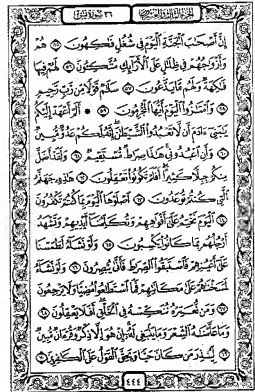 الجزء الثالث والعشرون ٣٦ سورة يس
إِنَّ أَصْحَٰبَ ٱلْجَنَّةِ ٱلْيَوْمَ فِى شُغُلٍ فَٰكِهُونَ ٥٥ هُمْ
وَأَزْوَٰجُهُمْ فِى ظِلَٰلٍ عَلَى ٱلْأَرَآئِكِ مُتَّكِـُٔونَ ٥٦ لَهُمْ فِيهَا
فَٰكِهَةٌ وَلَهُم مَّا يَدَّعُونَ ٥٧ سَلَٰمٌ قَوْلًا مِّن رَّبٍّ رَّحِيمٍ
٥٨ وَٱمْتَٰزُوا۟ ٱلْيَوْمَ أَيُّهَا ٱلْمُجْرِمُونَ ٥٩ ۞ أَلَمْ أَعْهَدْ إِلَيْكُمْ
يَٰبَنِىٓ ءَادَمَ أَن لَّا تَعْبُدُوا۟ ٱلشَّيْطَٰنَ إِنَّهُۥ لَكُمْ عَدُوٌّ مُّبِينٌ
٦٠ وَأَنِ ٱعْبُدُونِى هَٰذَا صِرَٰطٌ مُّسْتَقِيمٌ ٦١ وَلَقَدْ أَضَلَّ
مِنكُمْ جِبِلًّا كَثِيرًا أَفَلَمْ تَكُونُوا۟ تَعْقِلُونَ ٦٢ هَٰذِهِۦ جَهَنَّمُ
ٱلَّتِى كُنتُمْ تُوعَدُونَ ٦٣ ٱصْلَوْهَا ٱلْيَوْمَ بِمَا كُنتُمْ تَكْفُرُونَ
٦٤ ٱلْيَوْمَ نَخْتِمُ عَلَىٰٓ أَفْوَٰهِهِمْ وَتُكَلِّمُنَآ أَيْدِيهِمْ وَتَشْهَدُ
أَرْجُلُهُم بِمَا كَانُوا۟ يَكْسِبُونَ ٦٥ وَلَوْ نَشَآءُ لَطَمَسْنَا
عَلَىٰٓ أَعْيُنِهِمْ فَٱسْتَبَقُوا۟ ٱلصِّرَٰطَ فَأَنَّىٰ يُبْصِرُونَ ٦٦ وَلَوْ نَشَآءُ
لَمَسَخْنَٰهُمْ عَلَىٰ مَكَانَتِهِمْ فَمَا ٱسْتَطَٰعُوا۟ مُضِيًّا وَلَا يَرْجِعُونَ
٦٧ وَمَن نُّعَمِّرْهُ نُنَكِّسْهُ فِى ٱلْخَلْقِ أَفَلَا يَعْقِلُونَ ٦٨
وَمَا عَلَّمْنَٰهُ ٱلشِّعْرَ وَمَا يَنۢبَغِى لَهُۥٓ إِنْ هُوَ إِلَّا ذِكْرٌ وَقُرْءَانٌ مُّبِينٌ
٦٩ لِّيُنذِرَ مَن كَانَ حَيًّا وَيَحِقَّ ٱلْقَوْلُ عَلَى ٱلْكَٰفِرِينَ ٧٠
٤٤٤